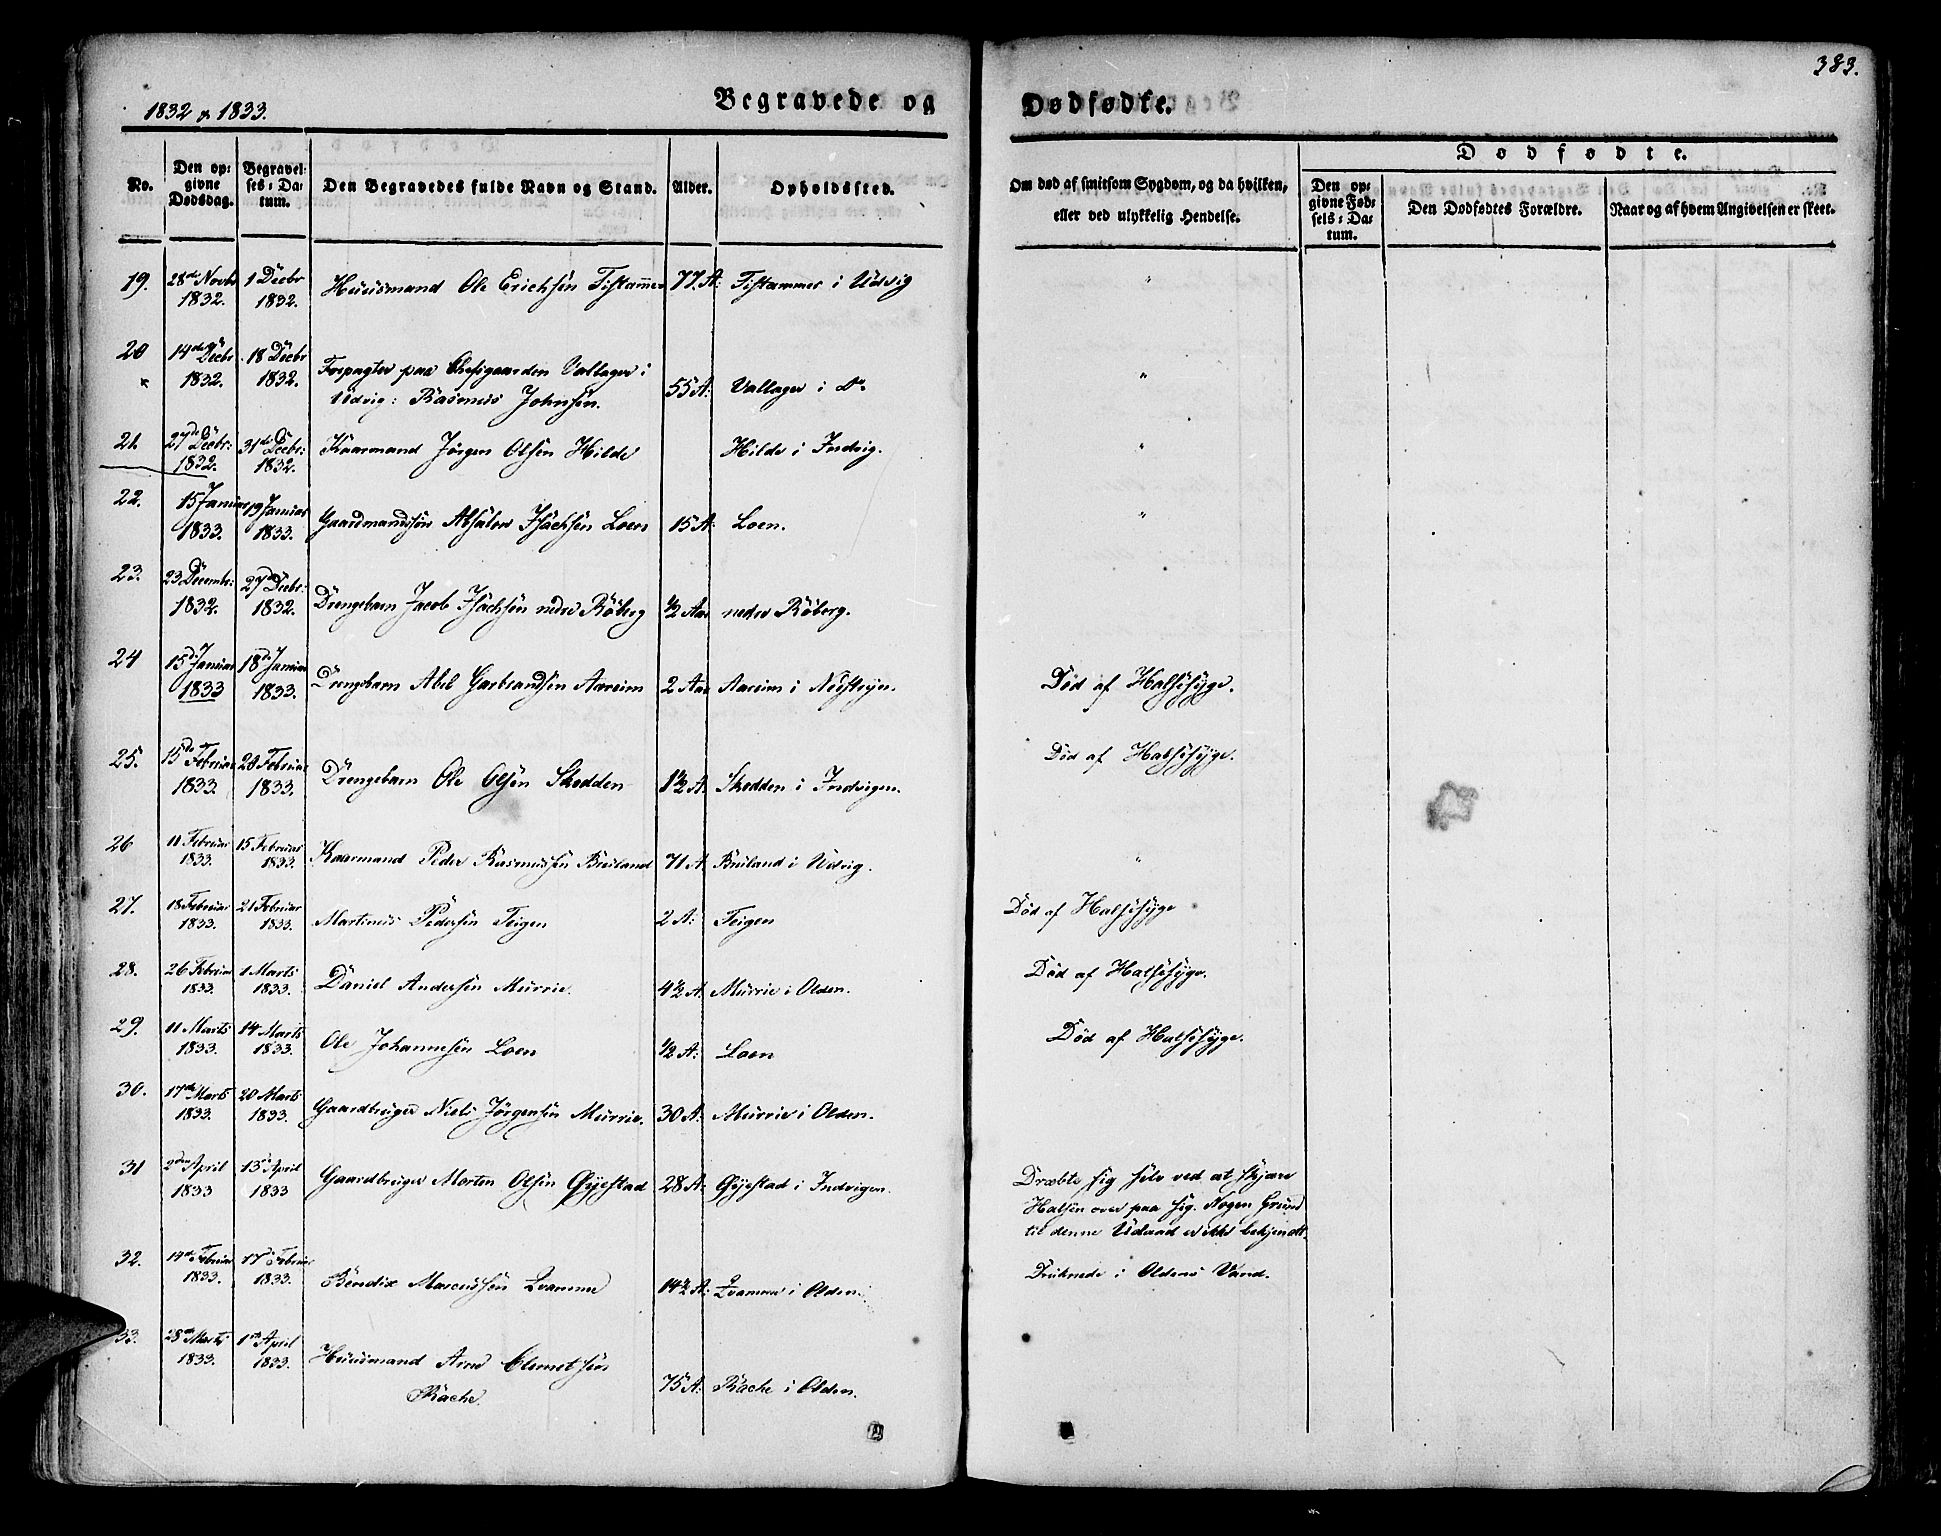 383.
1832 & 1833.
Begravede og Dødfødte.
Dødfødte.
No.
Den opgivne Dødsdag.
Begravelses-Datum.
Den Begravedes fulde Navn og Stand.
Alder.
Opholdssted.
Om død af smitsom Sygdom, og da hvilken, eller ved ulykkelig Hendelse.
Den opgivne Fødsels-Datum.
Den Dødfødtes Forældre.
Naar og af hvem Angivelsen er skeet.
19. 28de Novbr 1832. 1 Decbr 1832. Huusmand Ole Erichsen Tistammer 77 A: Tistammer i Udvig "
20 14de Decbr 1832. 18 Decbr 1832. Forpagter paa Chefsgaarden Vallager i
Udvig: Rasmus Johnsen. 55 A: Vallager i do "
21. 27de Decbr: 1832. 31de Decbr: 1832. Kaarmand Jørgen Olsen Hilde Hilde i Indvig. "
22. 15 Januar 1833. 19 Januar 1833. Gaardmandssøn Absalon Isachsen Loen 15 A: Loen. "
23. 23 Decembr: 1832. 27de Decbr: 1832. Drengebarn Jacob Isachsen nedre Røberg 1/2 Aar nedre Røberg.
24 15de Januar 1833 18de Januar 1833. Drengebarn Abel Garbrandsen Aareim 2 Aar Aareim i Nøstryn. Død af Halssyge.
25. 15de Februar 1833. 20 Februar 1833. Drengebarn Ole Olsen Skedden 1 1/2 A: Skedden i Indvigen. Død af Halssyge.
26 11 Februar 1833. 15 Februar 1833. Kaarmand Peder Rasmussen Breiland 71 A: Breiland i Udvig. "
27. 18 Februar 1833. 21 Februar 1833. Martinus Pedersen Teigen 2 A: Teigen Død af Halssyge
28. 26 Februar 1833. 1 Marts 1833. Daniel Andersen Murrie. 4 1/2 A: Murrie i Olden. Død af Halssyge.
29. 11 Marts 1833. 14 Marts 1833. Ole Johannesen Loen 1/2 A: Loen Død af Halssyge.
30. 17de Marts 1833. 20 Marts 1833. Gaardbruger Niels Jørgensen Murrie. 30 A: Murrie i Olden.
31 2den April 1833 13de April 1833 Gaardbruger Morten Olsen Gjestad 28 A: Gjestad i Indvigen. Dræbte sig selv ved at skjære
Halsen over paa sig. Nogen Grund
til denne Udaad er ikke bekjendt.
32. 14de Februar 1833. 17 Februar 1833. Bendix Marcussen Qvamme 14 1/2 A: Qvamme i Olden. Druknede i Oldens Vand.
33. 28de Marts 1833. 1ste April 1833. Huusmand Arne Clemetsen
Rache. 75 A: Rache i Olden.